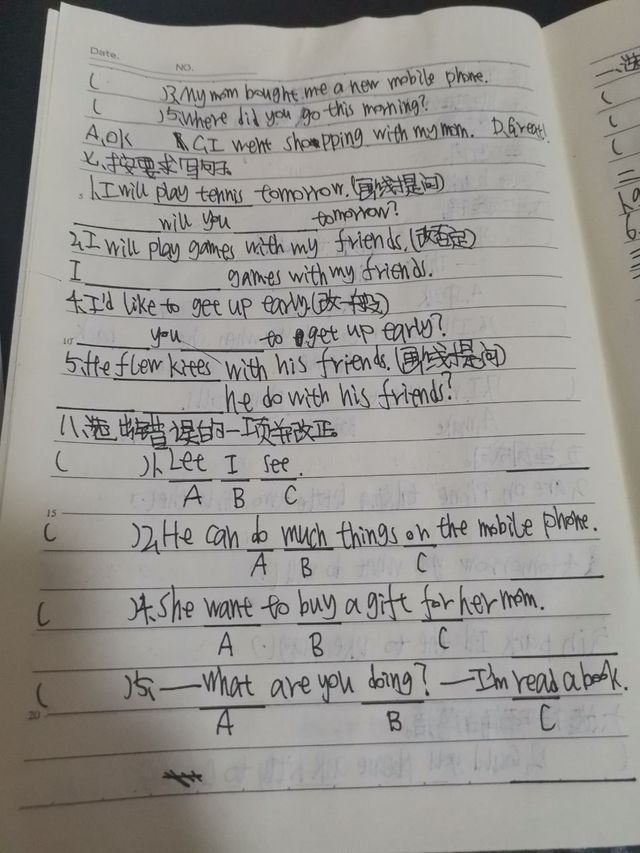 Date.
NO.
( )3.My mom bought me a new mobile phone.
( )5.Where did you go this morning?
A.OK C.I went shopping with my mom. D.Great!
按要求写句子
5 1.I will play tennis tomorrow.(画线提问)
will you tomorrow?
2.I will play games with my friends.(改否定)
I games with my friends.
4.I'd like to get up early.(改一般)
10 you to get up early?
5.He flew kites with his friends.(画线提问)
he do with his friends?
八、选出错误的一项并改正。
( )1.Let I see.
A B C
15
( )2.He can do much things on the mobile phone.
A B C
( )4.She want to buy a gift for her mom.
A B C
( )5.—What are you doing? —I'm read a book.
20 A B C